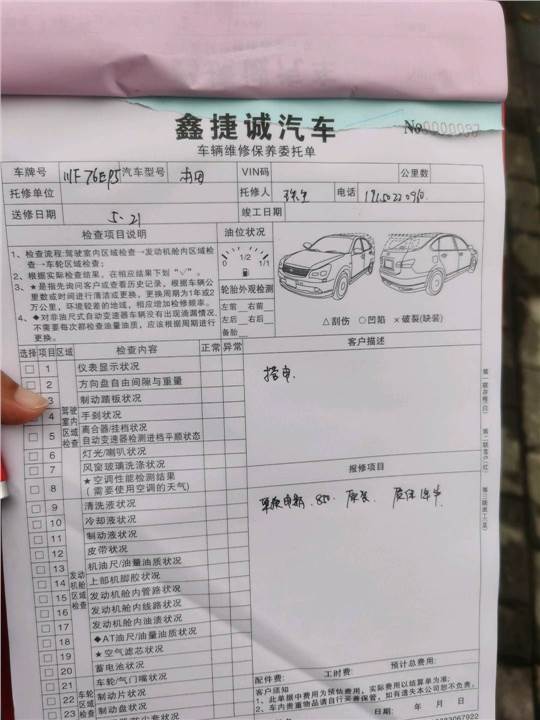 鑫捷诚汽车
No0000037
车辆维修保养委托单
车牌号 川F76EP5 汽车型号 本田 VIN码 公里数
托修单位 托修人 电话
送修日期 5.21 竣工日期
检查项目说明 油位状况
1、检查流程:驾驶室内区域检查→发动机舱内区域检查→车轮区域检查。
2、根据实际检查结果，在相应结果下划“√”。
3、★是指先询问客户或查看历史记录，根据车辆公里数或时间进行清洁或更换，更换周期为1年或2万公里，环境较差的地域，相应增加检修频率。
4、◆对非油尺式自动变速器车辆没有出现油漏情况，不需要每次都检查油量油质，应该根据周期进行更换。
0 1/2 1/1
轮胎外观检测
左前 右前
左后 右后
备胎
△刮伤 ○凹陷 ×破裂(缺装)
选择 项目 区域 检查内容 正常 异常 客户描述
驾驶室内区域检查
1 仪表显示状况
2 方向盘自由间隙与重量
3 制动踏板状况
4 手刹状况
5 离合器/挂档状况
自动变速器检测进档平顺状态
6 灯光/喇叭状况
7 风窗玻璃洗涤状况
8 ★空调性能检测结果
(需要使用空调的天气)
搭电
报修项目
更换电瓶 850. 原装. 质保1年
发动机舱区域检查
9 清洗液状况
10 冷却液状况
11 制动液状况
12 皮带状况
13 机油尺/油量油质状况
14 上部机脚胶状况
15 发动机舱内管路状况
16 发动机舱内线路状况
17 发动机舱内油渍状况
18 ◆AT油尺/油量油质状况
19 ★空气滤芯状况
20 蓄电池状况
车轮区域检查
21 车轮/气门嘴状况
22 制动片状况
23 制动盘状况
配件费: 工时费: 预计总费用:
客户须知
1、此单据中费用为预估费用，实际费用以结算单为准;
2、车内贵重物品请自行妥善保管，如有遗失本公司恕不负责。
日期: 年 月 日